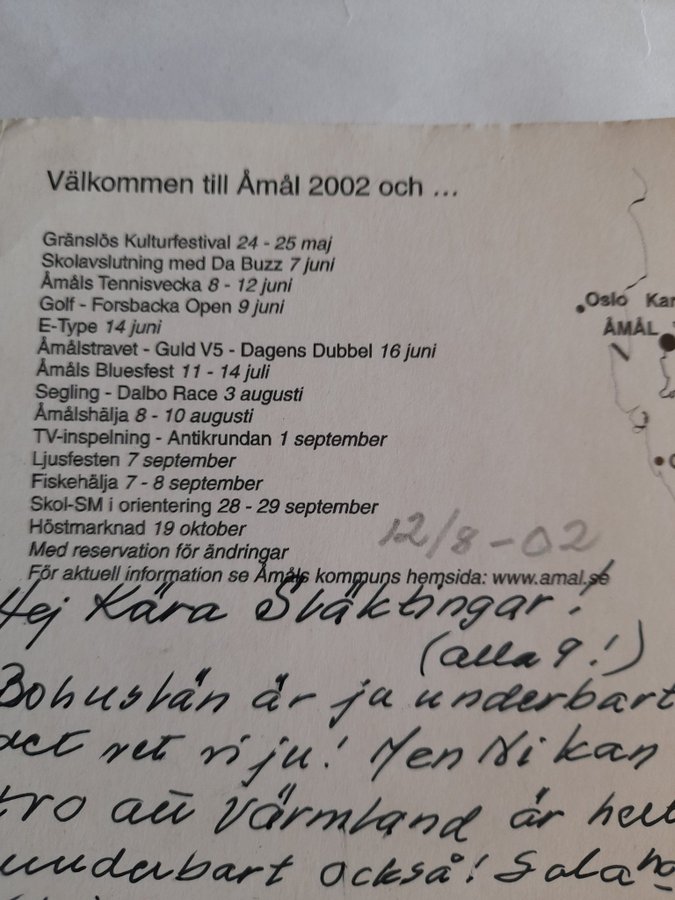 Välkommen till Åmål 2002 och ...
Gränslös Kulturfestival 24 - 25 maj
Skolavslutning med Da Buzz 7 juni
Åmåls Tennisvecka 8 - 12 juni
Golf - Forsbacka Open 9 juni
E-Type 14 juni
Åmålstravet - Guld V5 - Dagens Dubbel 16 juni
Åmåls Bluesfest 11 - 14 juli
Segling - Dalbo Race 3 augusti
Åmålshälja 8 - 10 augusti
TV-inspelning - Antikrundan 1 september
Ljusfesten 7 september
Fiskehälja 7 - 8 september
Skol-SM i orientering 28 - 29 september
Höstmarknad 19 oktober
Med reservation för ändringar
För aktuell information se Åmåls kommuns hemsida: www.amal.se
Oslo Kar
ÅMÅL
12/8-02
Hej Kära Släktingar!
(alla 9!)
Bohuslän är ju underbart
det vet vi ju! Men Ni kan
tro att Värmland är helt
underbart också!